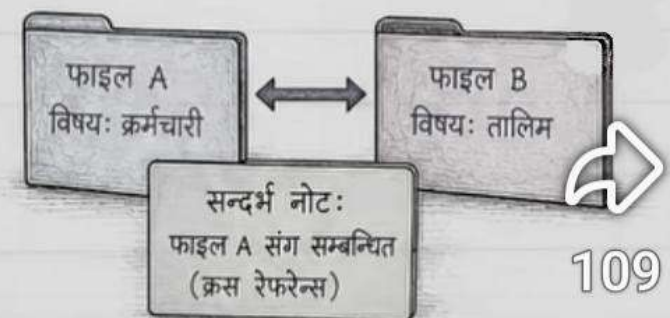 फाइल A
विषयः क्रर्मचारी
फाइल B
विषयः तालिम
सन्दर्भ नोटः
फाइल A संग सम्बन्धित
(क्रस रेफरेन्स)
109